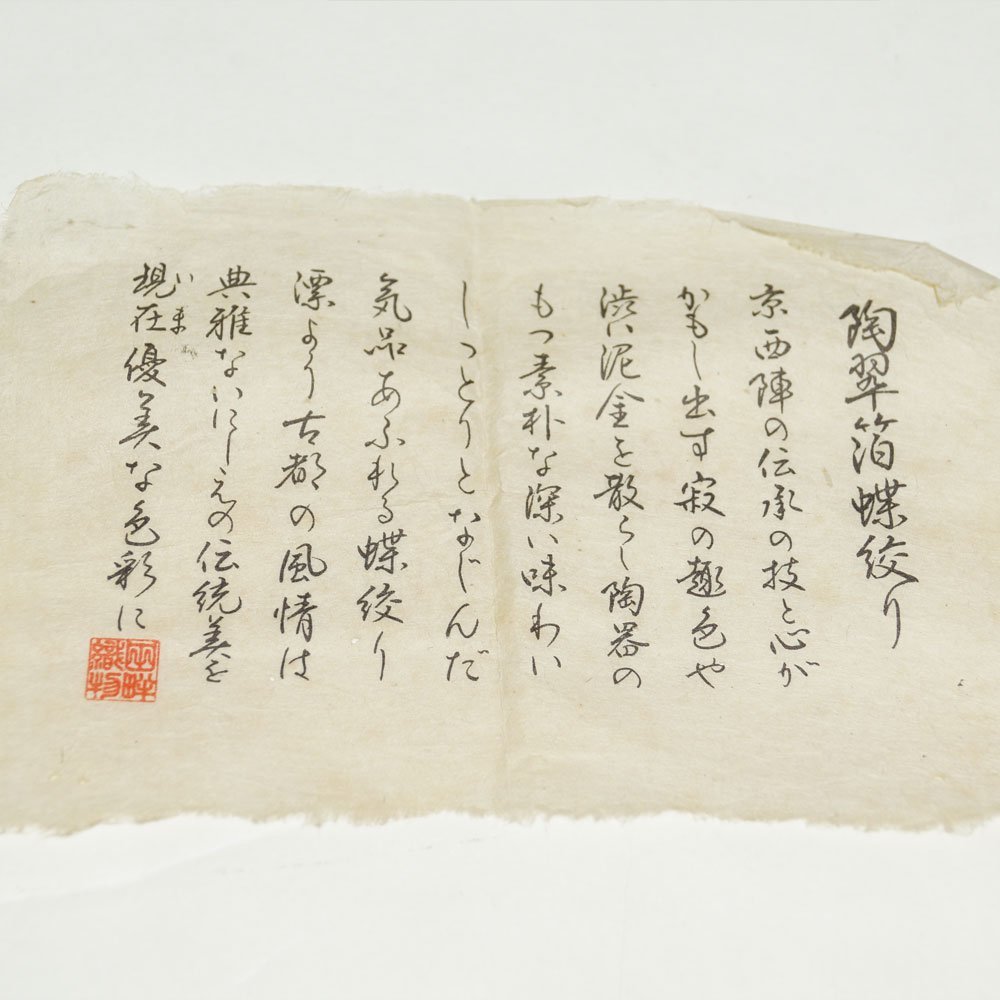 陶翠箔蝶絞り
京西陣の伝承の技と心が
かもし出す寂の趣色や
渋い泥金を散らし陶器の
もつ素朴な深い味わい
しっとりとなじんだ
気品あふれる蝶絞り
漂よう古都の風情は
典雅ないにしえの伝統美を
現在優美な色彩に
いま
織物